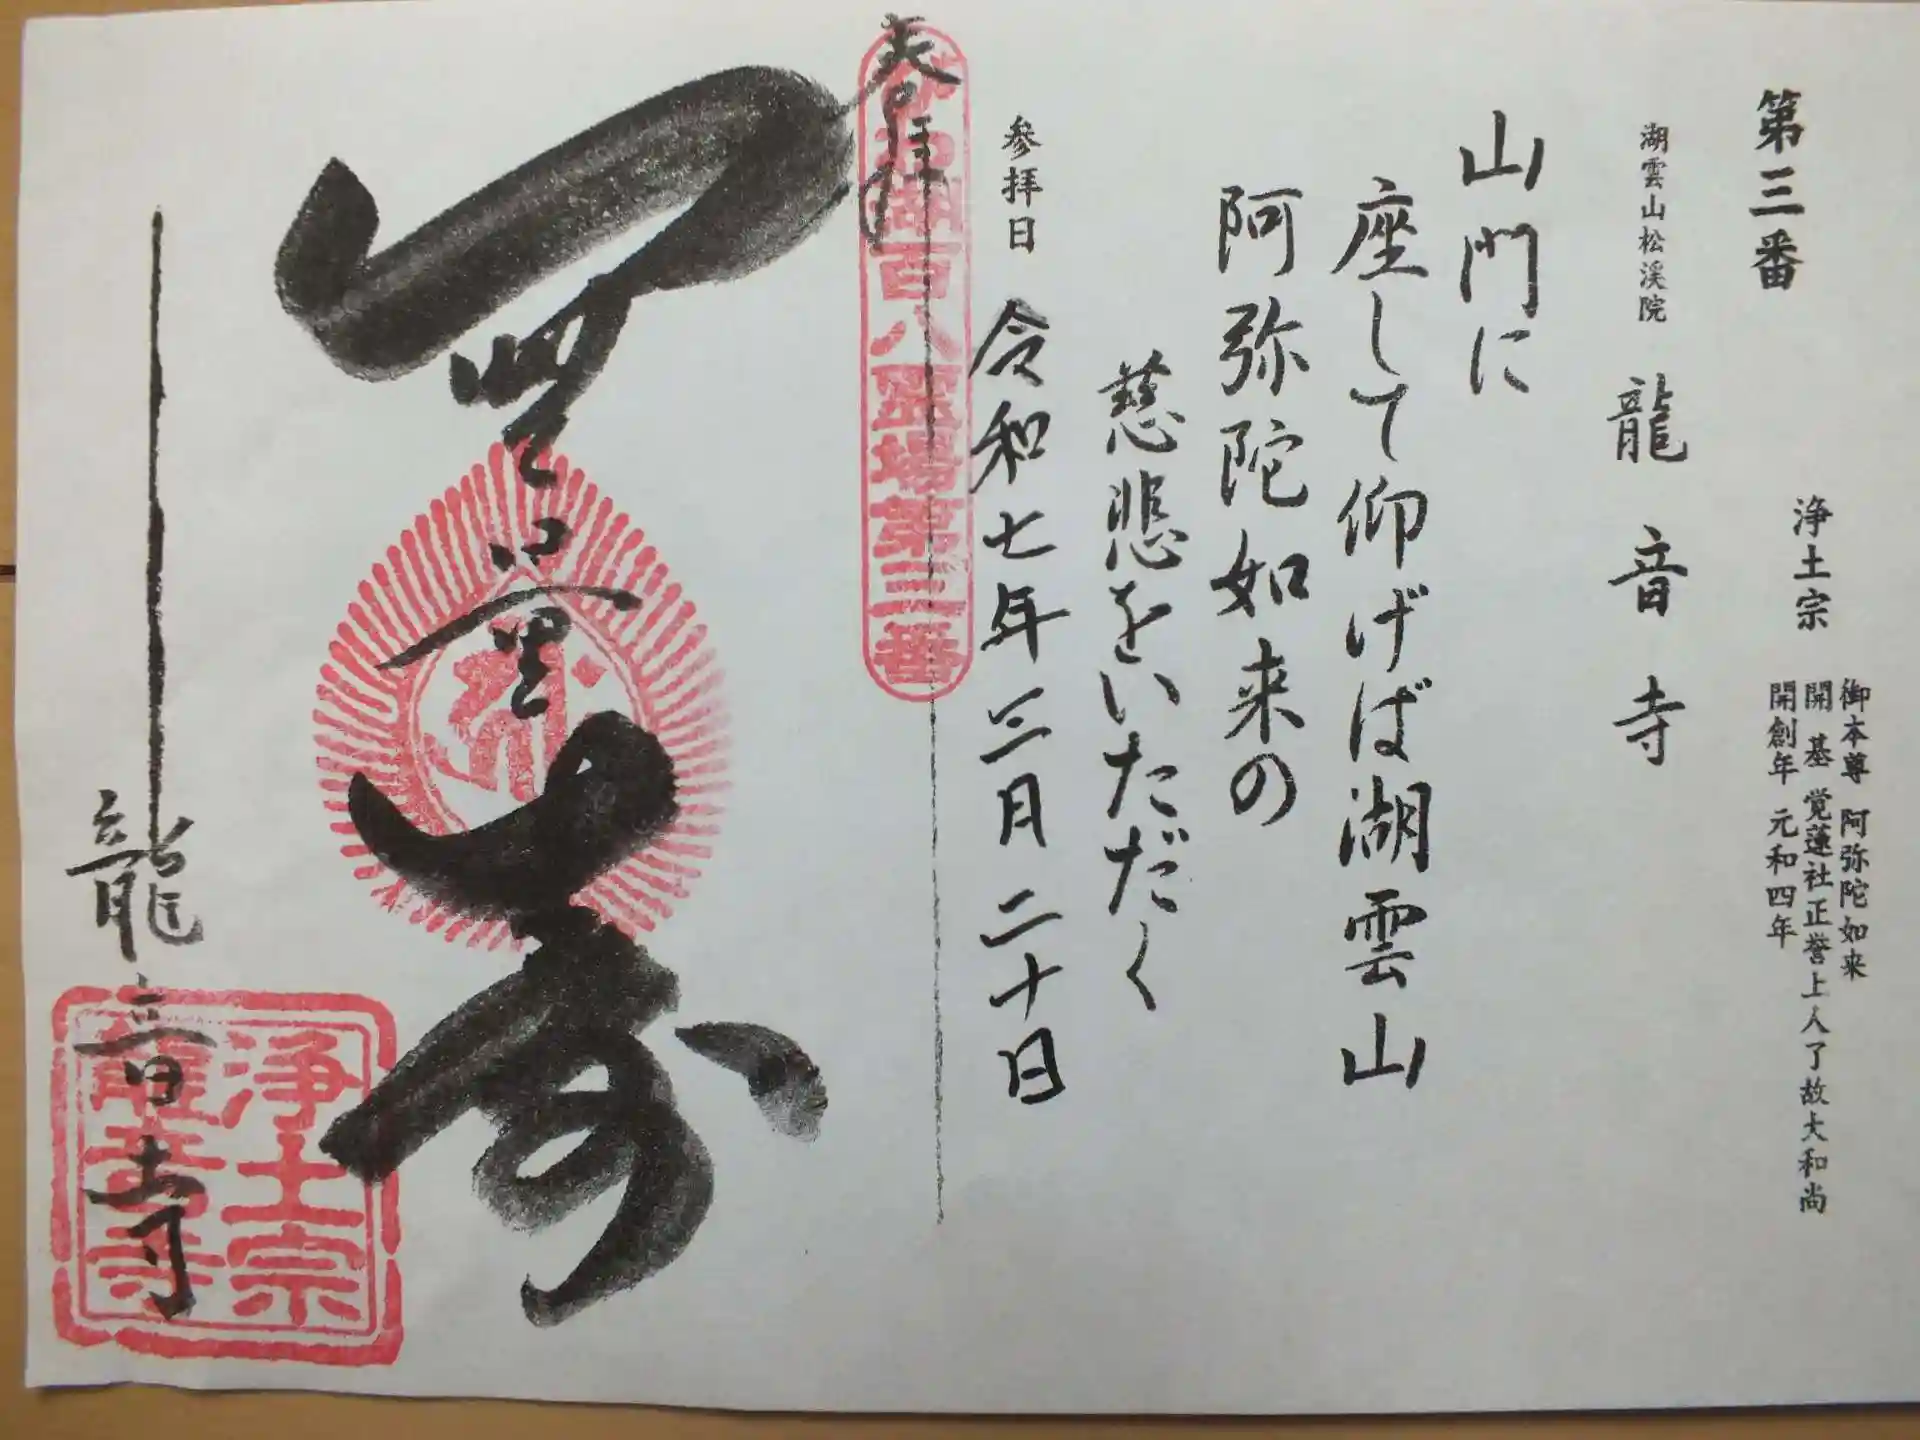 第三番
浄土宗
御本尊 阿弥陀如来
開基 覚蓮社正誉上人了故大和尚
開創年 元和四年
湖雲山松渓院 龍音寺
山門に
座して仰げば湖雲山
阿弥陀如来の
慈悲をいただく
参拝日 令和七年三月二十日
奉拝
びわ湖百八霊場第三番
無量寿
龍音寺
浄土宗
龍音寺